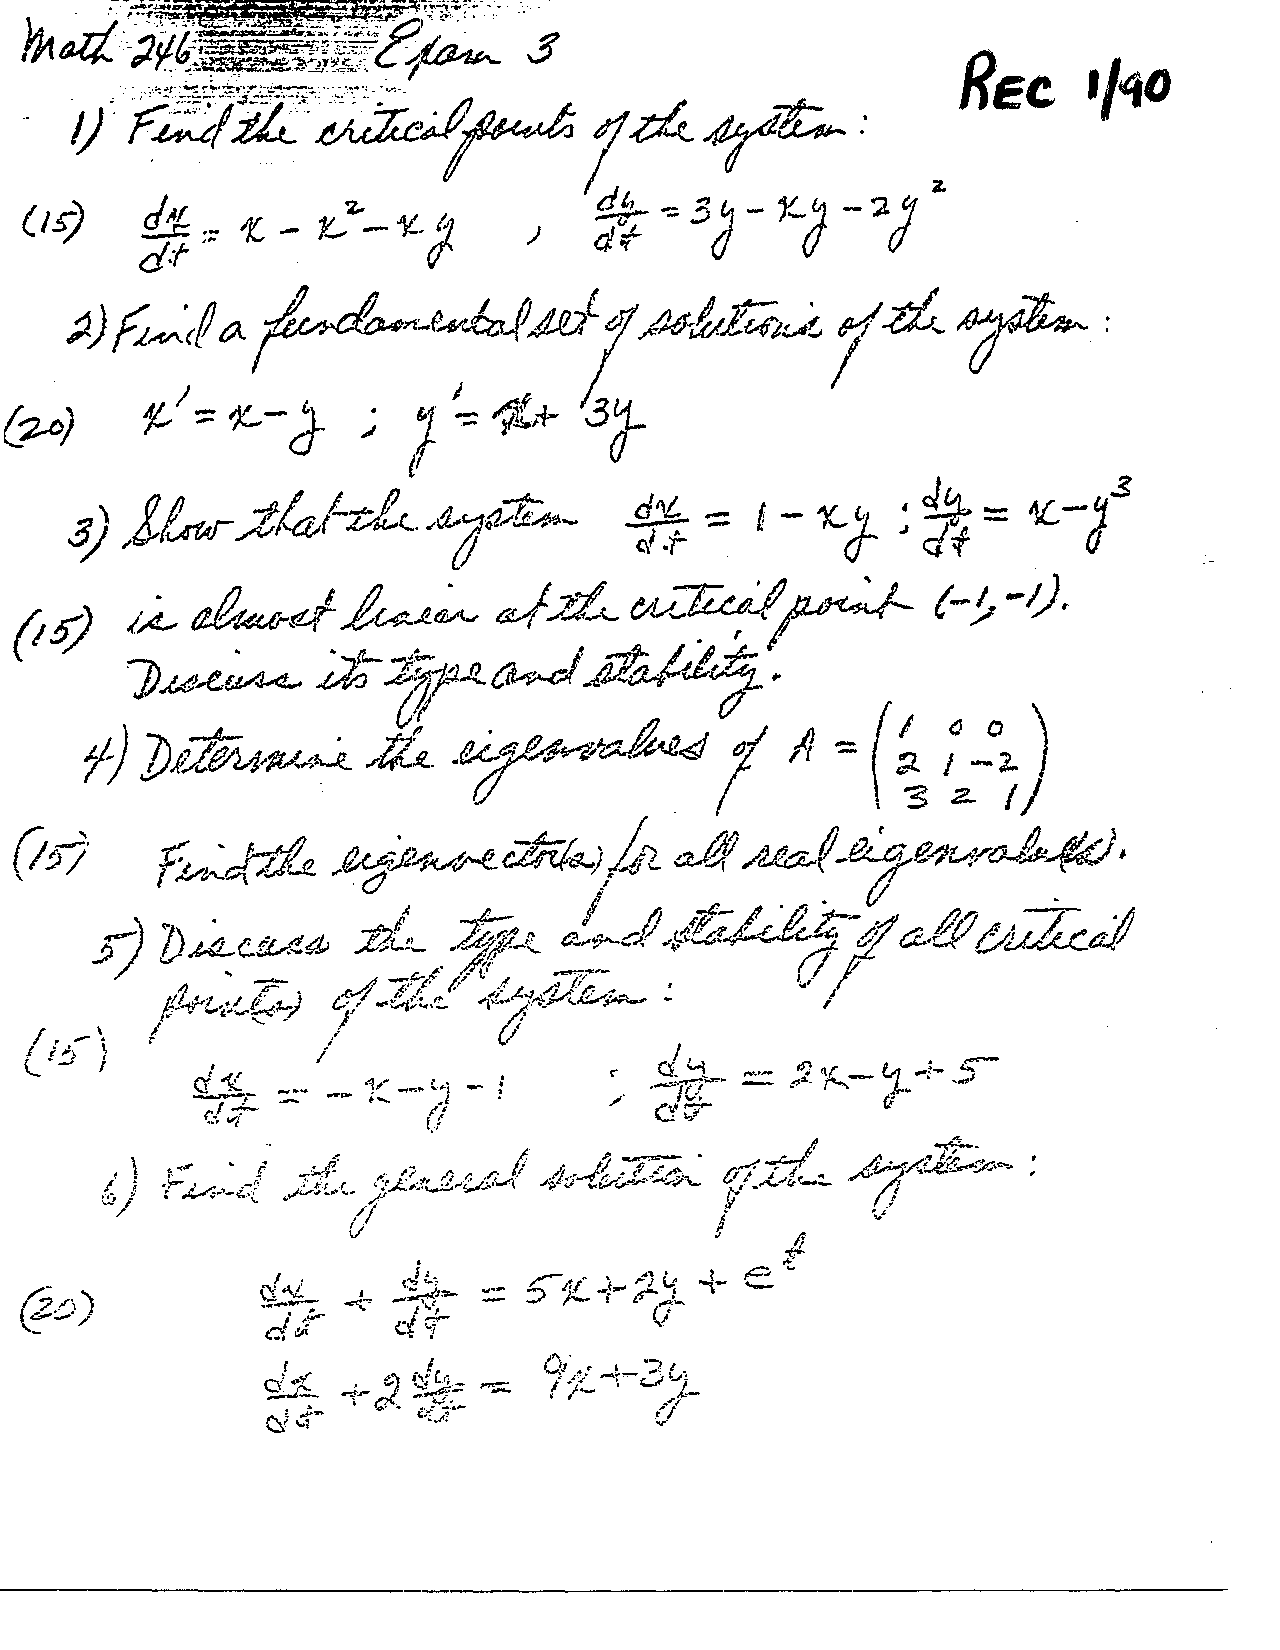 Math 246 Exam 3
REC 1/90
1) Find the critical points of the system:
(15) dx/dt = x - x² - xy , dy/dt = 3y - xy - 2y²
2) Find a fundamental set of solutions of the system:
(20) x' = x - y ; y' = x + 3y
3) Show that the system dx/dt = 1 - xy ; dy/dt = x - y³
(15) is almost linear at the critical point (-1,-1).
Discuss its type and stability.
4) Determine the eigenvalues of A = (1 0 0
2 1 -2
3 2 1)
(15) Find the eigenvector(s) for all real eigenvalue(s).
5) Discuss the type and stability of all critical
point(s) of the system:
(15)
dx/dt = -x - y - 1 ; dy/dt = 2x - y + 5
6) Find the general solution of the system:
(20) dx/dt + dy/dt = 5x + 2y + e^t
dx/dt + 2 dy/dt = 9x + 3y